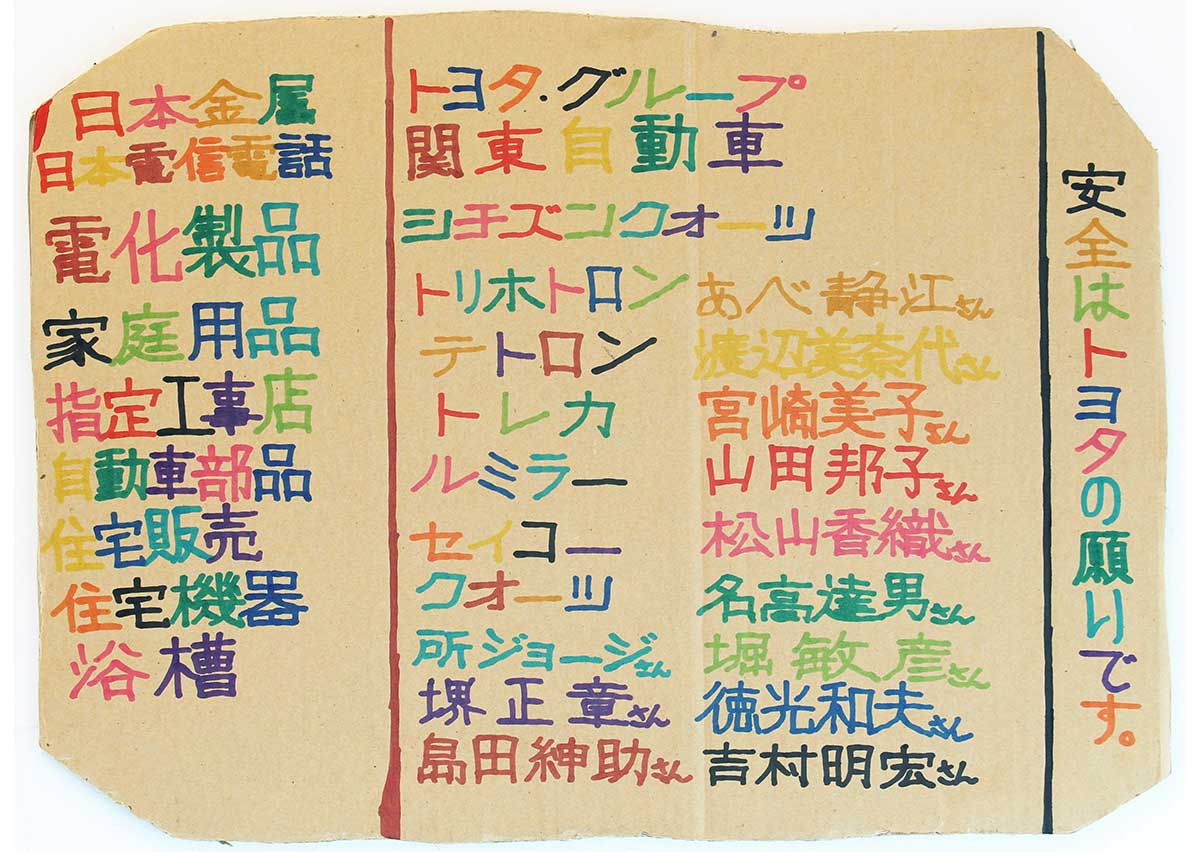 日本金属
日本電信電話
電化製品
家庭用品
指定工事店
自動車部品
住宅販売
住宅機器
浴槽
トヨタ・グループ
関東自動車
シチズンクオーツ
トリホトロン
テトロン
トレカ
ルミラー
セイコー
クオーツ
所ジョージさん
堺正章さん
島田紳助さん
あべ静江さん
渡辺美奈代さん
宮崎美子さん
山田邦子さん
松山香織さん
名高達男さん
堀敏彦さん
徳光和夫さん
吉村明宏さん
安全はトヨタの願りです。